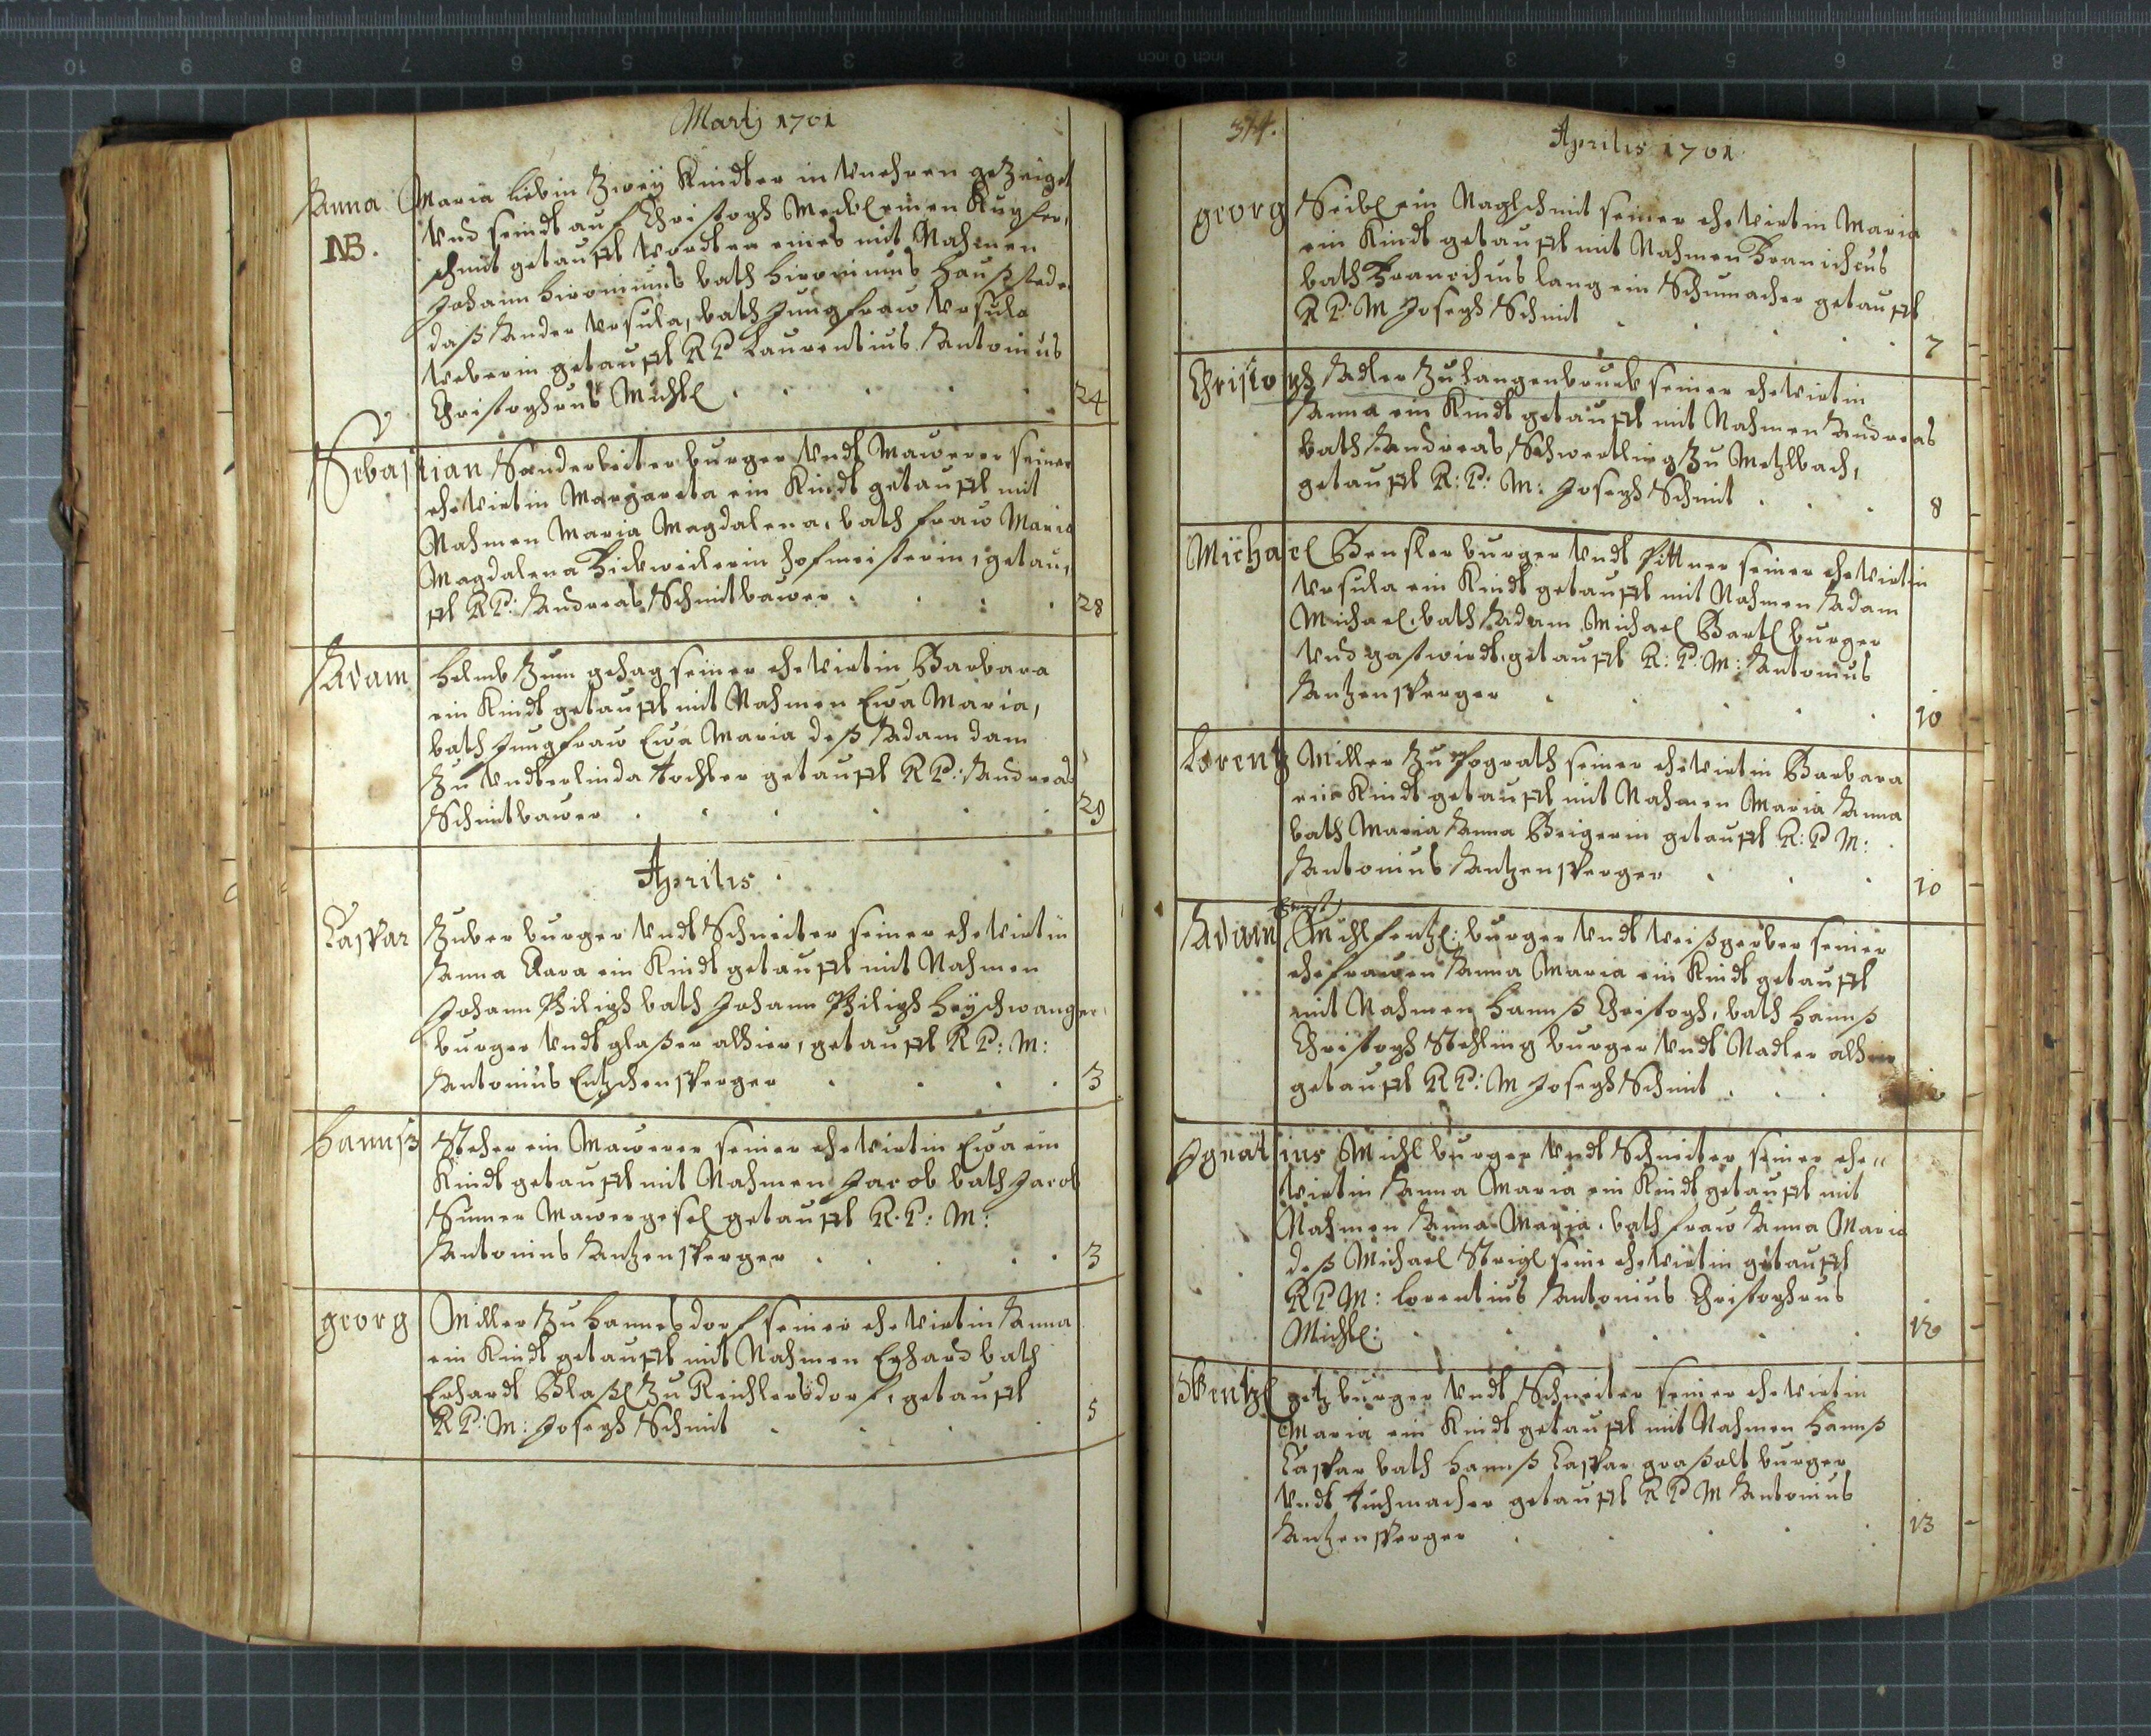 Martij 1701
Anna Maria liebin Zweÿ Kindter in Unehren gezeiget
NB. Und seindt auf Christoph Merkl einen Kupfer,
schmit getaufft wordten eines mit Nahmen
Johann Hironimus bath Hironimus
daß Ander Ursula, bath Jungfraw Ursula
Weberin getaufft R P Laurentius Antonius
Christophrus Michl 24
Sebastian burger Undt Mawerer seiner
ehewirtin Margareta ein Kindt getaufft mit
Nahmen Maria Magdalena, bath fraw Maria
Magdalena hofmeisterin, getau,
fft R P: Andreas Schmitbawer 28
Adam Helmb Zum gehag seiner ehewirtin Barbara
ein Kindt getaufft mit Nahmen Eva Maria,
bath Jungfraw Eva Maria deß Adam dam
Zu Undterlinda tochter getaufft R P: Andreas
Schmitbawer 29
Aprilis
Caspar Zuber burger Undt Schneiter seiner ehewirtin
Anna Clara ein Kindt getaufft mit Nahmen
Johann Philiph bath Johann Philiph Heyschwanger
burger Undt glaßer alhier, getaufft R P: M:
Antonius Entzensperger 3
Hannß Steher ein Mawerer seiner ehewirtin Eva ein
Kindt getaufft mit Nahmen Jacob bath Jacob
Sumer Mawergesel getaufft R. P: M:
Antonius Antzensperger 3
georg Miller Zu Hannesdorf seiner ehewirtin Anna
ein Kindt getaufft mit Nahmen Erhard bath
Erhardt Blaßl Zu Reichlersdorf, getaufft
R P: M: Joseph Schmit 5
374. Aprilis 1701
georg Seibl ein Naglschmit seiner ehewirtin Maria
ein Kindt getaufft mit Nahmen Francischus
bath Francischus lang ein Schumacher getaufft
R P: M Joseph Schmit 7
Christoph Adler Zu Langenbruck seiner ehewirtin
Anna ein Kindt getaufft mit Nahmen Andreas
bath Andreas Schwertling Zu Metzlbach,
getaufft R: P: M: Joseph Schmit 8
Michael burger Undt seiner ehewirtin
Ursula ein Kindt getaufft mit Nahmen Adam
Michael, bath Adam Michael Bartl burger
Und gastwirdt, getaufft R: P: M: Antonius
Antzensperger 10
Lorentz Miller Zu seiner ehewirtin Barbara
ein Kindt getaufft mit Nahmen Maria Anna
bath Maria Anna Geigerin getaufft R: P M:
Antonius Antzensperger 10
Adam burger Undt Weißgerber seiner
ehefrawen Anna Maria ein Kindt getaufft
mit Nahmen Hannß Christoph, bath Hannß
Christoph Stehling burger Undt Nadler alhier
getaufft R P: M Joseph Schmit
Ignatius Michl burger Undt Schneiter seiner ehe"
wirtin Anna Maria ein Kindt getaufft mit
Nahmen Anna Maria, bath fraw Anna Maria
deß Michael Strigl seine ehewirtin getaufft
R P M: Lorentius Antonius Christophrus
Michl: 12
Wentzl getz burger Undt Schneiter seiner ehewirtin
Maria ein Kindt getaufft mit Nahmen Hannß
Caspar bath Hannß Caspar graßolt burger
Undt tuchmacher getaufft R P M Antonius
Antzensperger 13